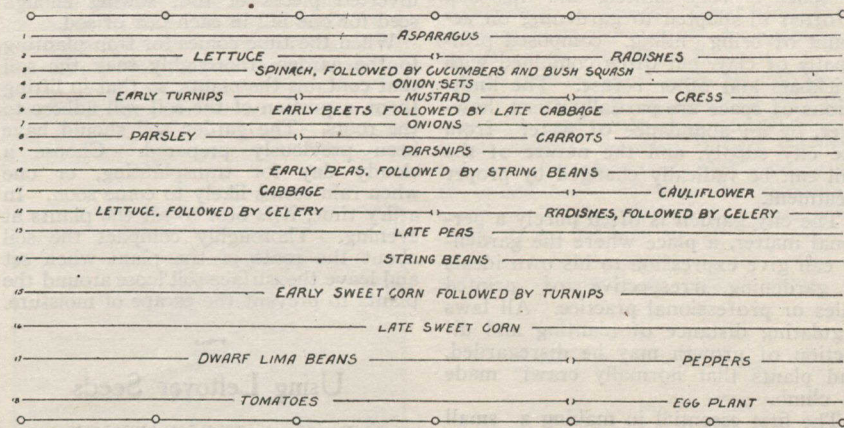 1 ASPARAGUS
2 LETTUCE RADISHES
3 SPINACH, FOLLOWED BY CUCUMBERS AND BUSH SQUASH
4 ONION SETS
5 EARLY TURNIPS MUSTARD CRESS
6 EARLY BEETS FOLLOWED BY LATE CABBAGE
7 ONIONS
8 PARSLEY CARROTS
9 PARSNIPS
10 EARLY PEAS, FOLLOWED BY STRING BEANS
11 CABBAGE CAULIFLOWER
12 LETTUCE, FOLLOWED BY CELERY RADISHES, FOLLOWED BY CELERY
13 LATE PEAS
14 STRING BEANS
15 EARLY SWEET CORN FOLLOWED BY TURNIPS
16 LATE SWEET CORN
17 DWARF LIMA BEANS PEPPERS
18 TOMATOES EGG PLANT